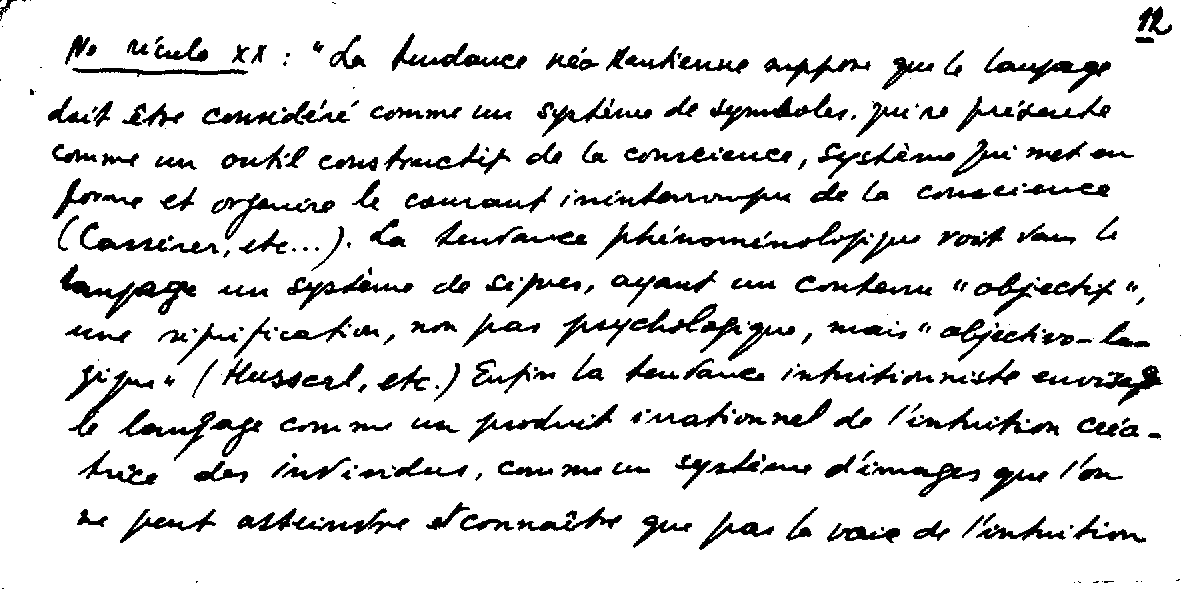 12
No século XX : "La tendance néo Kantienne suppose que le langage
doit être considéré comme un système de symboles, qui se présente
comme un outil constructif de la conscience, système qui met en
forme et organise le courant ininterrompu de la conscience
(Cassirer, etc...). La tendance phénoménologique voit dans le
langage un système de signes, ayant un contenu "objectif",
une signification, non pas psychologique, mais "objectivo-lo-
gique" (Husserl, etc.) Enfin la tendance intuitionniste envisage
le langage comme un produit irrationnel de l'intuition créa-
trice des individus, comme un système d'images que l'on
ne peut atteindre et connaître que par la voie de l'intuition